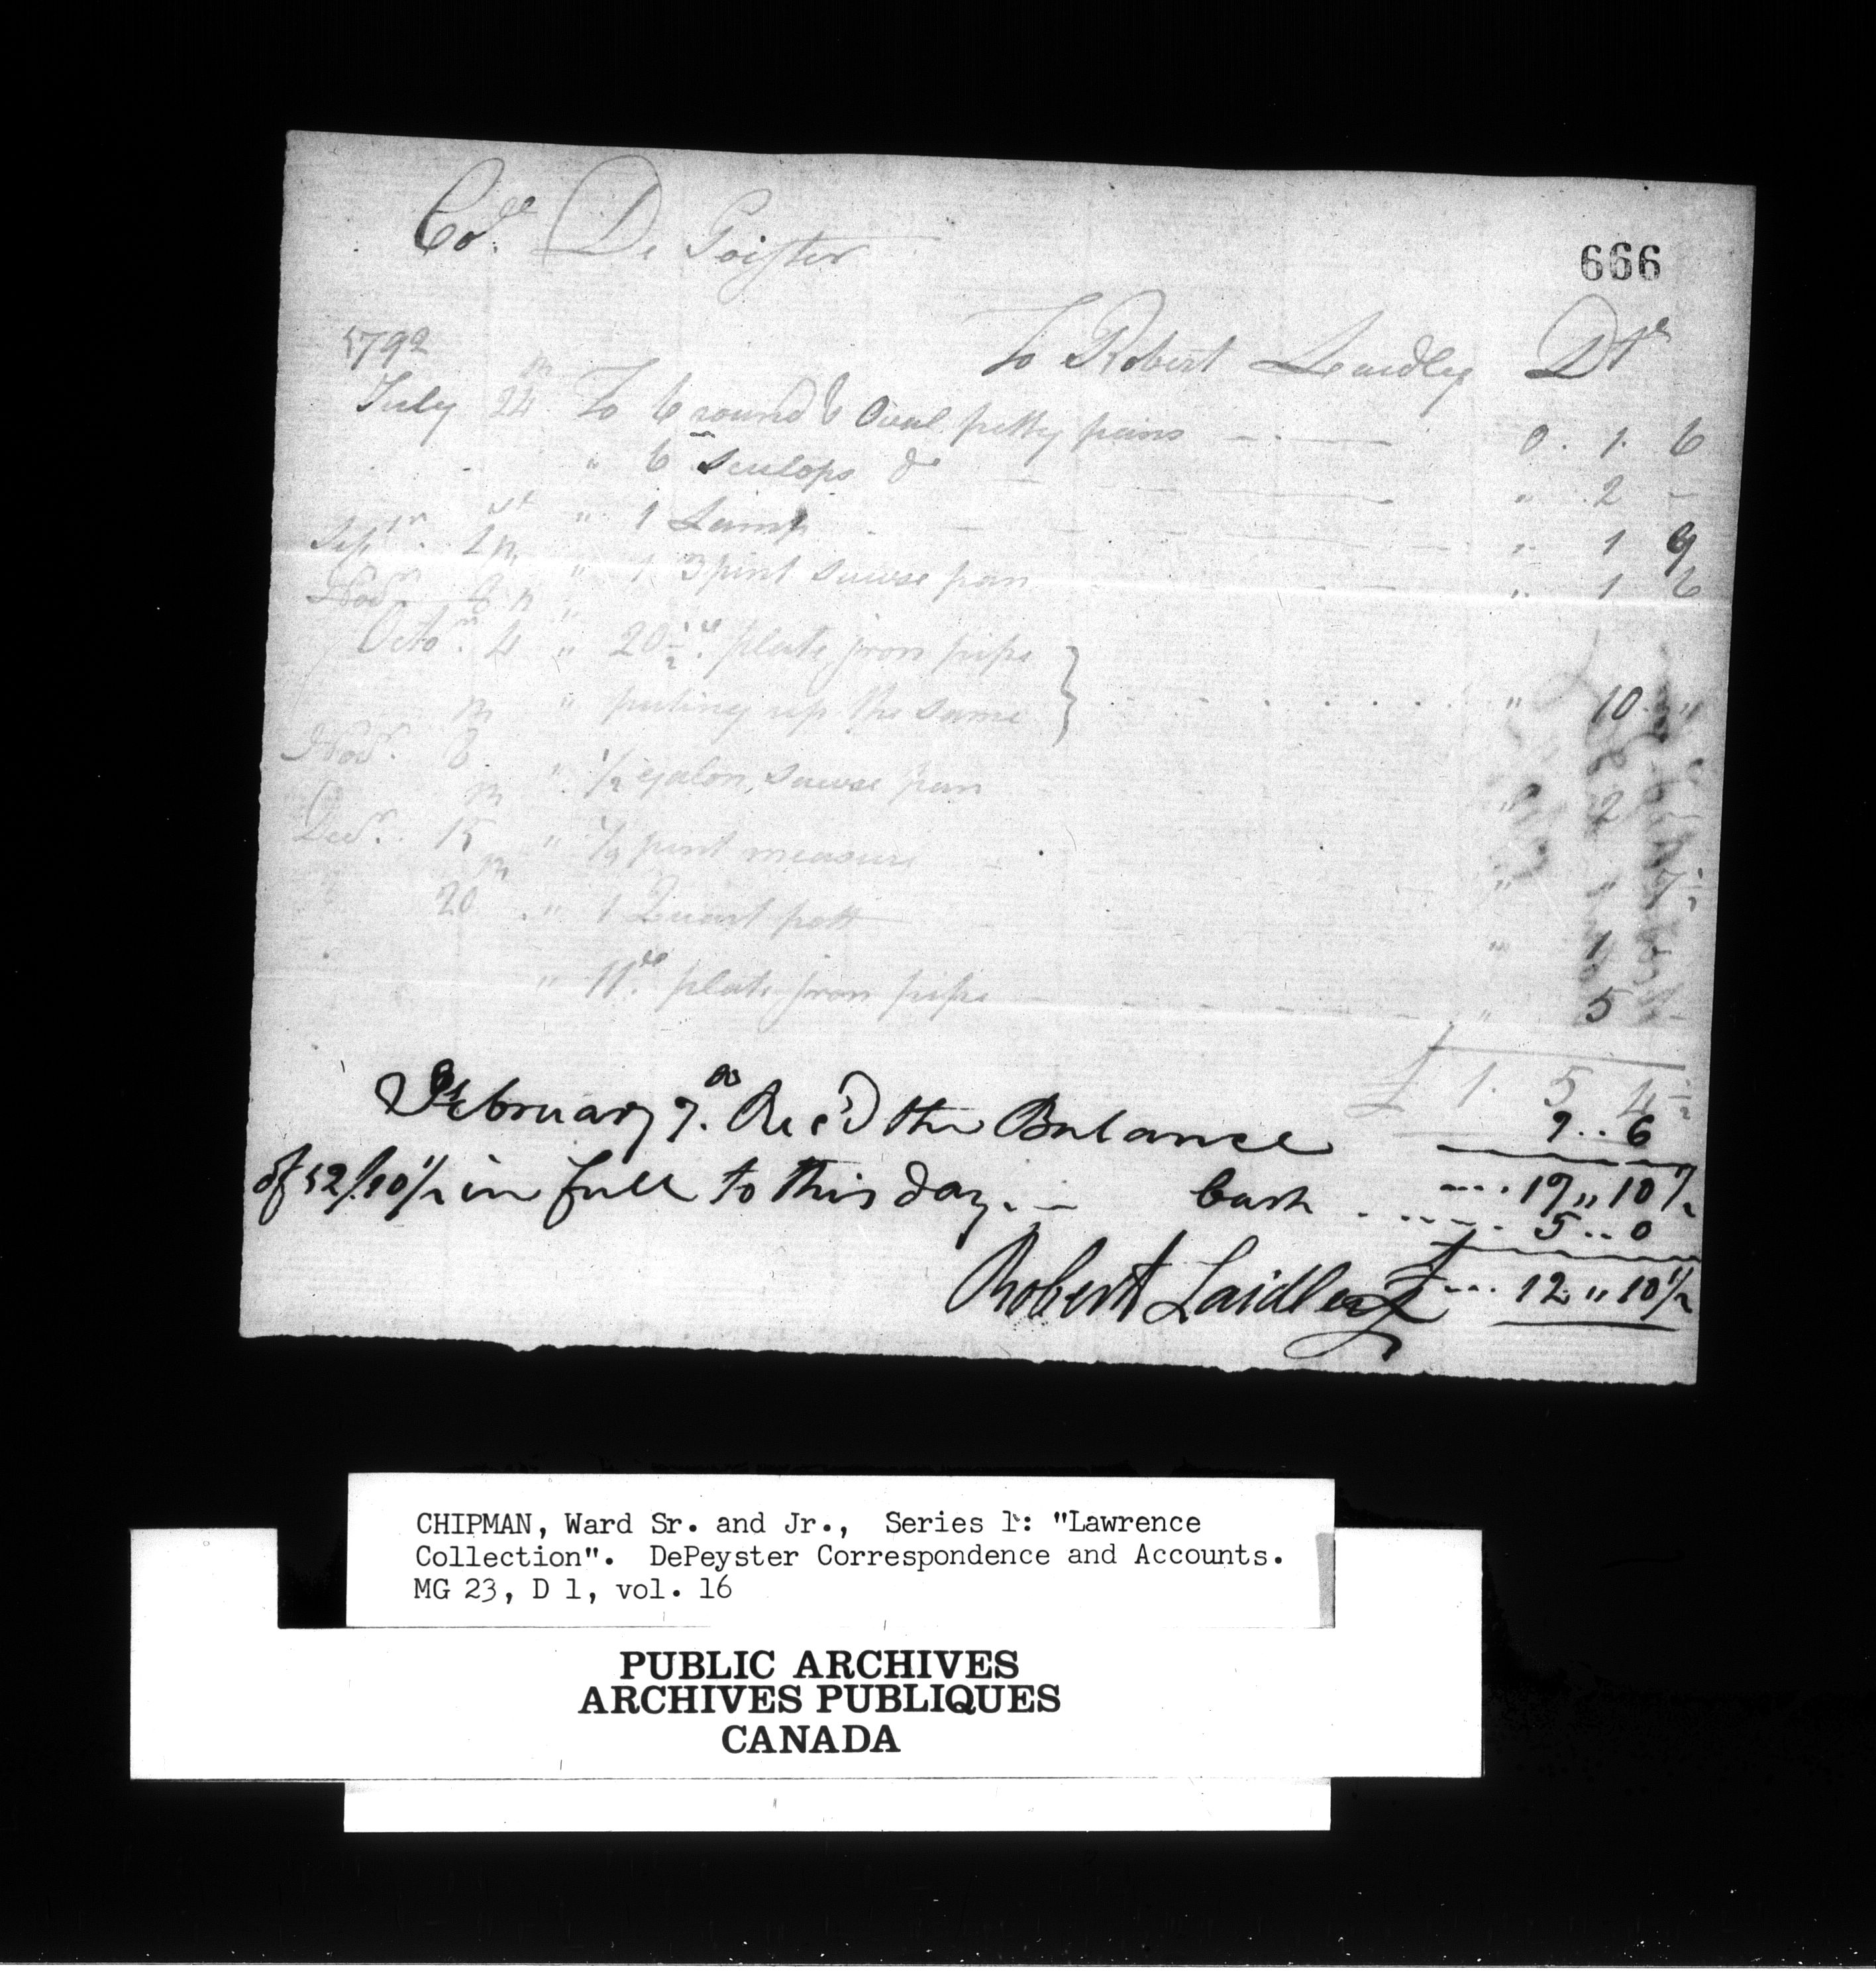 Col. De Poister
666
To Robert Leaidley Dr
1792
July 24th To 6 round 6 Oval petty pans 0. 1. 6
" 6 Sculops do " 2 -
" 1 Lamp " 1 9
Sepr 1st " 1 3 pint sawse pan " 1 6
Novr 8th "
Octo. 4th " 20 1/2 lb. plate jron pipe
" puting up the same } " 10 "
Novr. 8th " 1/2 galon, sawse pan " 2
Decr. 15th " 1/2 pint measure " " 7 1/2
20th " 1 Quart pott " 1
" 11 lb. plate jron pipe " 5
£ 1. 5 4 1/2
February 7th. Rec'd the Balance 7..6
of 12/10 1/2 in full to this day. — Cash 17 " 10 1/2
5..0
Robert Laidley £ 12 " 10 1/2
CHIPMAN, Ward Sr. and Jr., Series 1: "Lawrence
Collection". DePeyster Correspondence and Accounts.
MG 23, D 1, vol. 16
PUBLIC ARCHIVES
ARCHIVES PUBLIQUES
CANADA